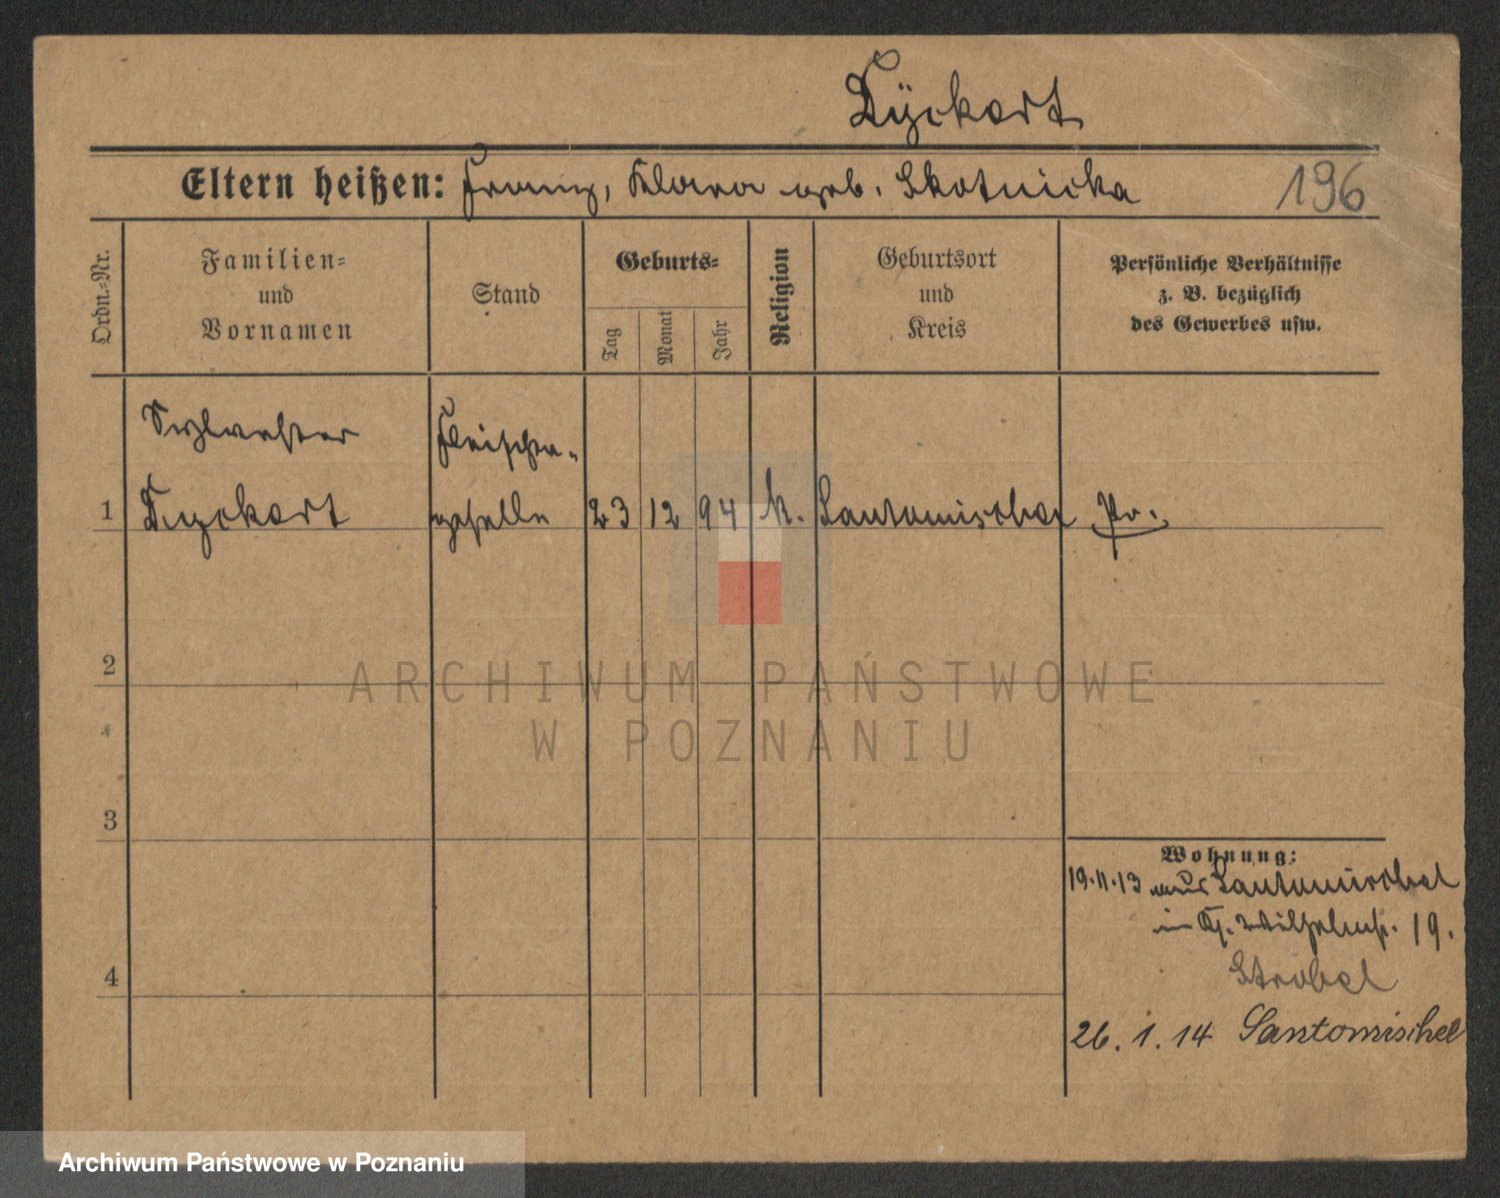 Dyckert
Eltern heißen: Franz, Klara geb. Skotnicka 196
Ordn.-Nr.
Familien-
und
Vornamen
Stand
Geburts-
Tag
Monat
Jahr
Religion
Geburtsort
und
Kreis
Persönliche Verhältnisse
z. B. bezüglich
des Gewerbes usw.
Sylvester Fleischer-
1 Dyckert geselle 23 12 94 k. Santomischel Pr.
2
ARCHIWUM PAŃSTWOWE
W POZNANIU
3
Wohnung:
19.11.13 aus Santomischel
in Wilhelmstr. 19.
4 Strobel
26.1.14 Santomischel
Archiwum Państwowe w Poznaniu